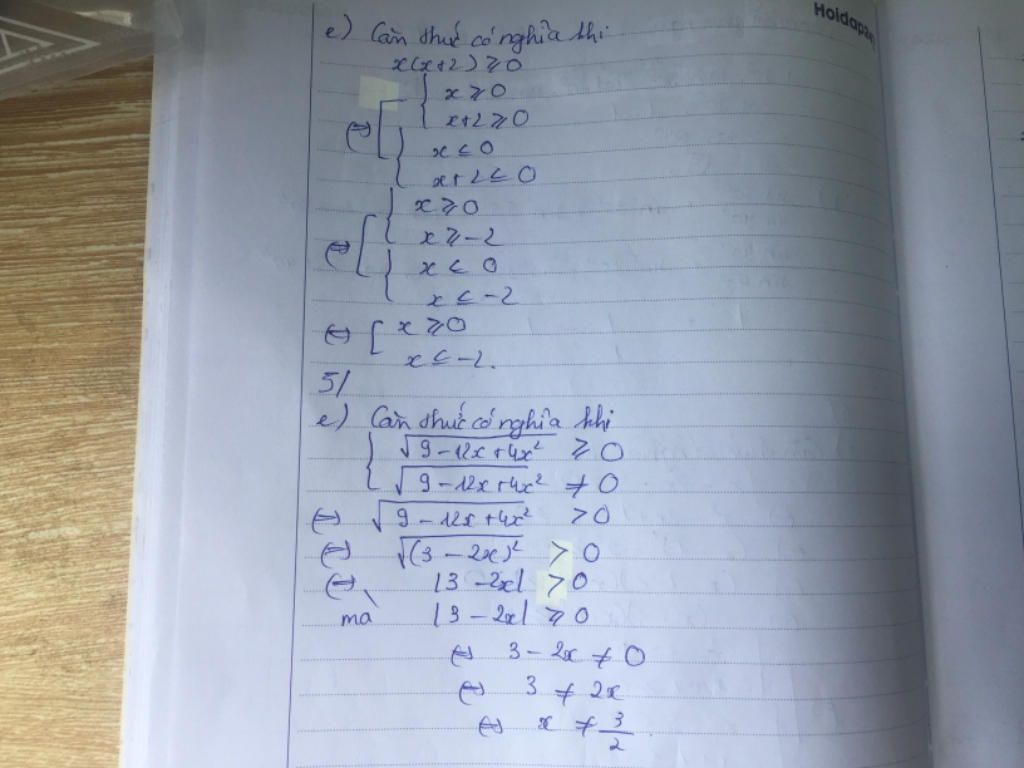 Holdapze
e) Căn thức có nghĩa khi
x(x+2) ≥ 0
x ≥ 0
(=) x+2 ≥ 0
x ≤ 0
x+2 ≤ 0
x ≥ 0
(=) x ≥ -2
x ≤ 0
x ≤ -2
(=) x ≥ 0
x ≤ -2.
5/
e) Căn thức có nghĩa khi
√9 - 12x + 4x² ≥ 0
√9 - 12x + 4x² ≠ 0
(=) √9 - 12x + 4x² > 0
(=) √(3 - 2x)² > 0
(=) |3 - 2x| > 0
mà |3 - 2x| ≥ 0
(=) 3 - 2x ≠ 0
(=) 3 ≠ 2x
(=) x ≠ 3/2